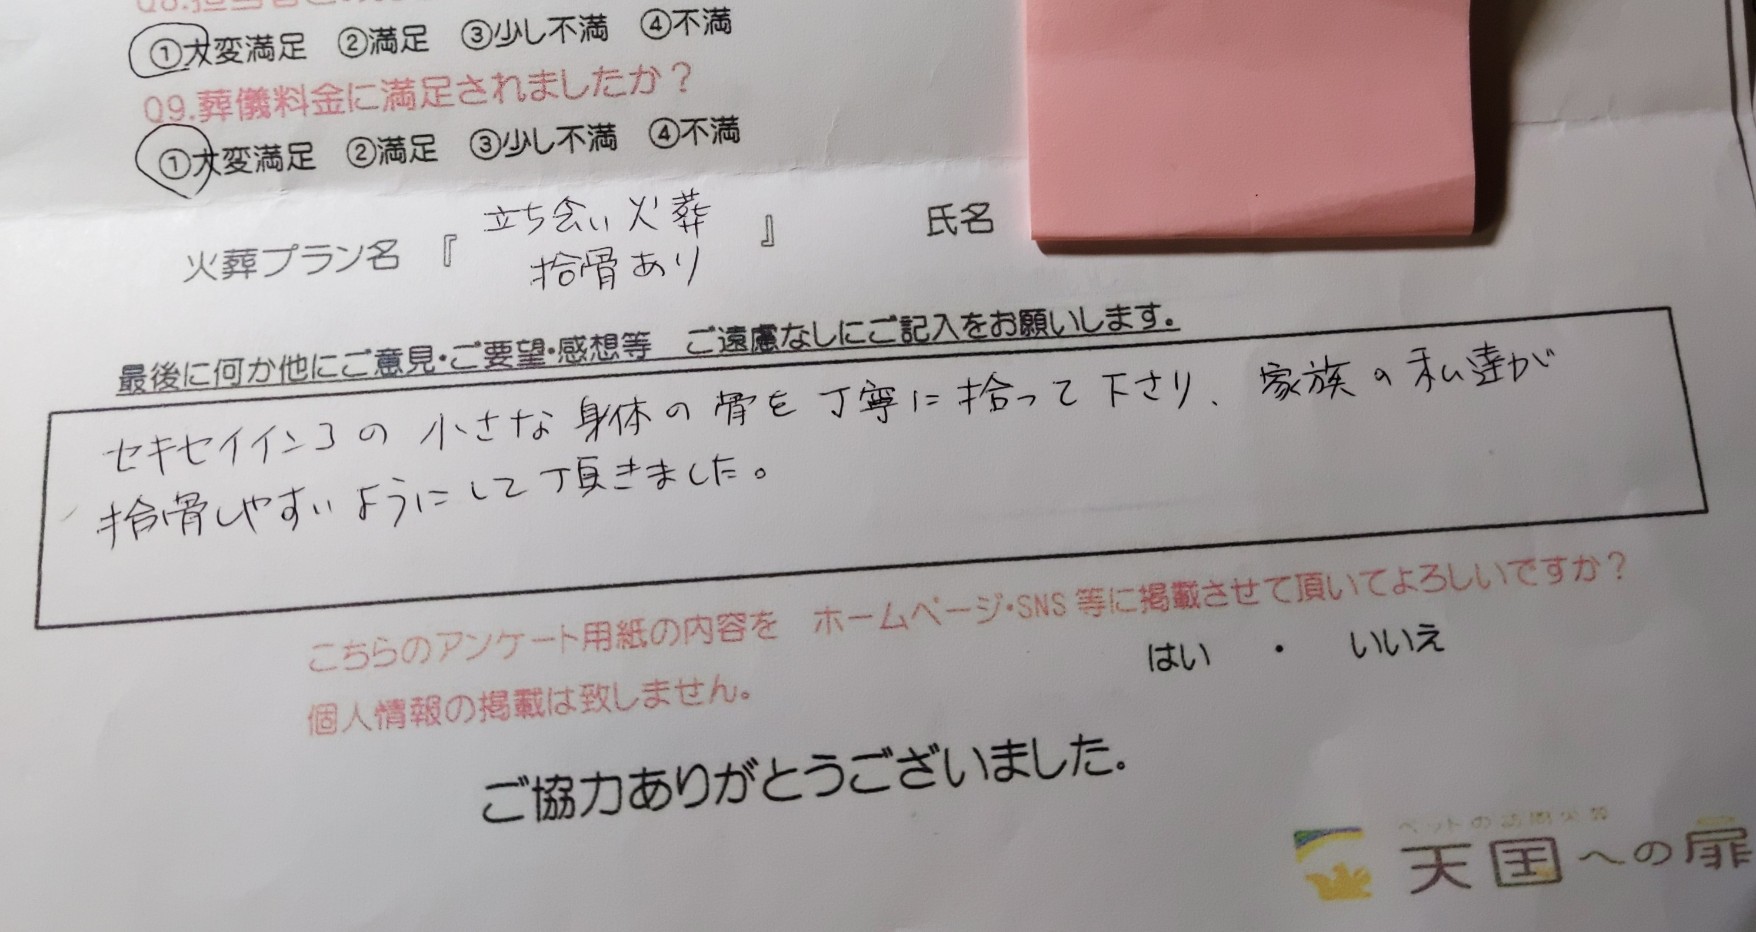 Q8.担当者
①大変満足 ②満足 ③少し不満 ④不満
Q9.葬儀料金に満足されましたか？
①大変満足 ②満足 ③少し不満 ④不満
火葬プラン名『立ち会い火葬
拾骨あり』 氏名
最後に何か他にご意見・ご要望・感想等 ご遠慮なしにご記入をお願いします。
セキセイインコの小さな身体の骨を丁寧に拾って下さり、家族の私達が
拾骨しやすいようにして頂きました。
こちらのアンケート用紙の内容を ホームページ・SNS等に掲載させて頂いてよろしいですか？
はい ・ いいえ
個人情報の掲載は致しません。
ご協力ありがとうございました。
ペットの訪問火葬
天国への扉